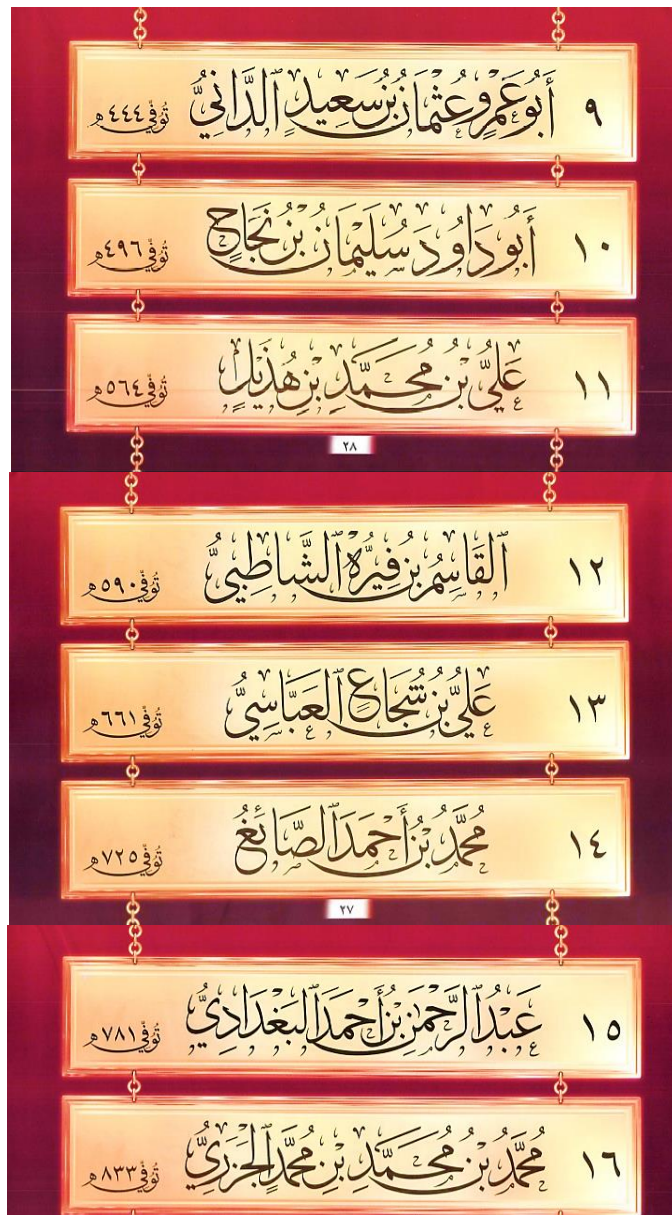 ٩ أَبُو عَمْرٍو عُثْمَانُ بْنُ سَعِيدٍ ٱلدَّانِيُّ تُوُفِّيَ ٤٤٤ هـ
١٠ أَبُو دَاوُدَ سُلَيْمَانُ بْنُ نَجَاحٍ تُوُفِّيَ ٤٩٦ هـ
١١ عَلِيُّ بْنُ مُحَمَّدِ بْنِ هُذَيْلٍ تُوُفِّيَ ٥٦٤ هـ
٢٨
١٢ ٱلقَاسِمُ بْنُ فِيرُّهْ ٱلشَّاطِبِيُّ تُوُفِّيَ ٥٩٠ هـ
١٣ عَلِيُّ بْنُ شُجَاعٍ ٱلعَبَّاسِيُّ تُوُفِّيَ ٦٦١ هـ
١٤ مُحَمَّدُ بْنُ أَحْمَدَ ٱلصَّائِغُ تُوُفِّيَ ٧٢٥ هـ
٢٧
١٥ عَبْدُ ٱلرَّحْمٰنِ بْنُ أَحْمَدَ ٱلبَغْدَادِيُّ تُوُفِّيَ ٧٨١ هـ
١٦ مُحَمَّدُ بْنُ مُحَمَّدِ بْنِ مُحَمَّدٍ ٱلجَزَرِيُّ تُوُفِّيَ ٨٣٣ هـ